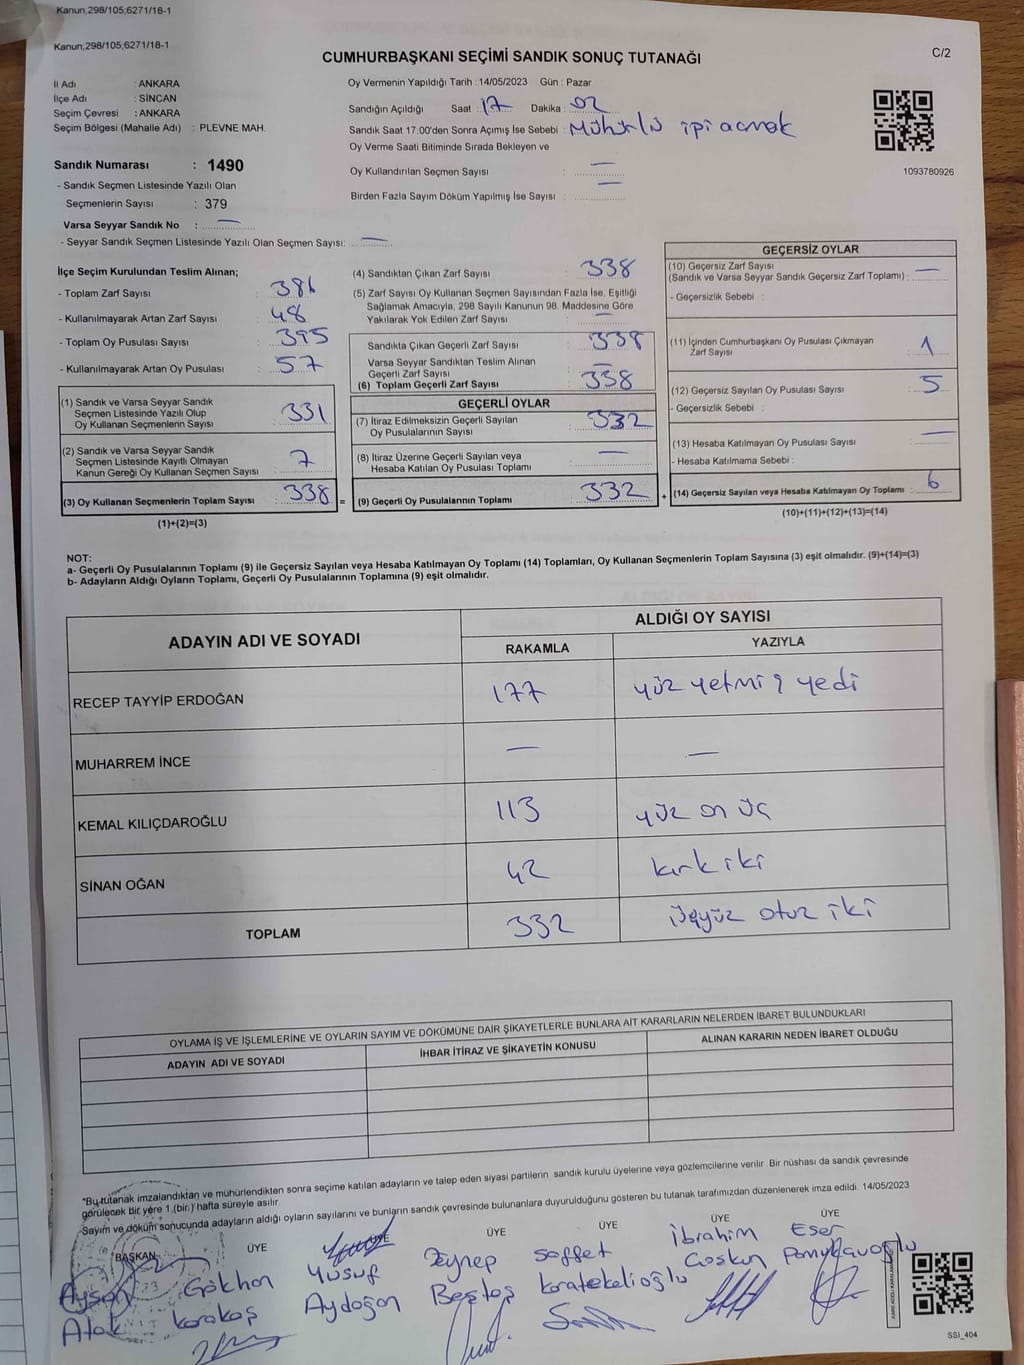 Kanun,298/105;6271/18-1
Kanun,298/105;6271/18-1
CUMHURBAŞKANI SEÇİMİ SANDIK SONUÇ TUTANAĞI
C/2
İl Adı : ANKARA
İlçe Adı : SİNCAN
Seçim Çevresi : ANKARA
Seçim Bölgesi (Mahalle Adı) : PLEVNE MAH.
Oy Vermenin Yapıldığı Tarih : 14/05/2023 Gün : Pazar
Sandığın Açıldığı Saat : 17 Dakika : 02
Sandık Saat 17:00'den Sonra Açımış İse Sebebi : Mühürlü ipi açmak
Oy Verme Saati Bitiminde Sırada Bekleyen ve
Oy Kullandırılan Seçmen Sayısı : —
Birden Fazla Sayım Döküm Yapılmış İse Sayısı : —
1093780926
Sandık Numarası : 1490
- Sandık Seçmen Listesinde Yazılı Olan
Seçmenlerin Sayısı : 379
Varsa Seyyar Sandık No : —
- Seyyar Sandık Seçmen Listesinde Yazılı Olan Seçmen Sayısı: —
İlçe Seçim Kurulundan Teslim Alınan;
- Toplam Zarf Sayısı : 386
- Kullanılmayarak Artan Zarf Sayısı : 48
- Toplam Oy Pusulası Sayısı : 395
- Kullanılmayarak Artan Oy Pusulası : 57
(1) Sandık ve Varsa Seyyar Sandık
Seçmen Listesinde Yazılı Olup
Oy Kullanan Seçmenlerin Sayısı : 331
(2) Sandık ve Varsa Seyyar Sandık
Seçmen Listesinde Kayıtlı Olmayan
Kanun Gereği Oy Kullanan Seçmen Sayısı : 7
(3) Oy Kullanan Seçmenlerin Toplam Sayısı : 338 =
(1)+(2)=(3)
(4) Sandıktan Çıkan Zarf Sayısı : 338
(5) Zarf Sayısı Oy Kullanan Seçmen Sayısından Fazla İse, Eşitliği
Sağlamak Amacıyla, 298 Sayılı Kanunun 98. Maddesine Göre
Yakılarak Yok Edilen Zarf Sayısı : —
Sandıkta Çıkan Geçerli Zarf Sayısı : 338
Varsa Seyyar Sandıktan Teslim Alınan
Geçerli Zarf Sayısı : —
(6) Toplam Geçerli Zarf Sayısı : 338
GEÇERLİ OYLAR
(7) İtiraz Edilmeksizin Geçerli Sayılan
Oy Pusulalarının Sayısı : 332
(8) İtiraz Üzerine Geçerli Sayılan veya
Hesaba Katılan Oy Pusulası Toplamı : —
(9) Geçerli Oy Pusulalarının Toplamı : 332 +
GEÇERSİZ OYLAR
(10) Geçersiz Zarf Sayısı
(Sandık ve Varsa Seyyar Sandık Geçersiz Zarf Toplamı) : —
- Geçersizlik Sebebi :
(11) İçinden Cumhurbaşkanı Oy Pusulası Çıkmayan
Zarf Sayısı : 1
(12) Geçersiz Sayılan Oy Pusulası Sayısı : 5
- Geçersizlik Sebebi :
(13) Hesaba Katılmayan Oy Pusulası Sayısı : —
- Hesaba Katılmama Sebebi :
(14) Geçersiz Sayılan veya Hesaba Katılmayan Oy Toplamı : 6
(10)+(11)+(12)+(13)=(14)
NOT:
a- Geçerli Oy Pusulalarının Toplamı (9) ile Geçersiz Sayılan veya Hesaba Katılmayan Oy Toplamı (14) Toplamları, Oy Kullanan Seçmenlerin Toplam Sayısına (3) eşit olmalıdır. (9)+(14)=(3)
b- Adayların Aldığı Oyların Toplamı, Geçerli Oy Pusulalarının Toplamına (9) eşit olmalıdır.
ADAYIN ADI VE SOYADI
ALDIĞI OY SAYISI
RAKAMLA YAZIYLA
RECEP TAYYİP ERDOĞAN 177 yüz yetmiş yedi
MUHARREM İNCE — —
KEMAL KILIÇDAROĞLU 113 yüz on üç
SİNAN OĞAN 42 kırk iki
TOPLAM 332 üçyüz otuz iki
OYLAMA İŞ VE İŞLEMLERİNE VE OYLARIN SAYIM VE DÖKÜMÜNE DAİR ŞİKAYETLERLE BUNLARA AİT KARARLARIN NELERDEN İBARET BULUNDUKLARI
ADAYIN ADI VE SOYADI İHBAR İTİRAZ VE ŞİKAYETİN KONUSU ALINAN KARARIN NEDEN İBARET OLDUĞU
*Bu tutanak imzalandıktan ve mühürlendikten sonra seçime katılan adayların ve talep eden siyasi partilerin sandık kurulu üyelerine veya gözlemcilerine verilir. Bir nüshası da sandık çevresinde
görülecek bir yere 1 (bir) hafta süreyle asılır.
Sayım ve döküm sonucunda adayların aldığı oyların sayılarını ve bunların sandık çevresinde bulunanlara duyurulduğunu gösteren bu tutanak tarafımızdan düzenlenerek imza edildi. 14/05/2023
BAŞKAN ÜYE ÜYE ÜYE ÜYE ÜYE ÜYE
Aysan Atak
Gökhan Karakaş
Yusuf Aydoğan
Zeynep Beştaş
Saffet Karatekelioğlu
İbrahim Coşkun
Eser Pamukavoğlu
SSI_404